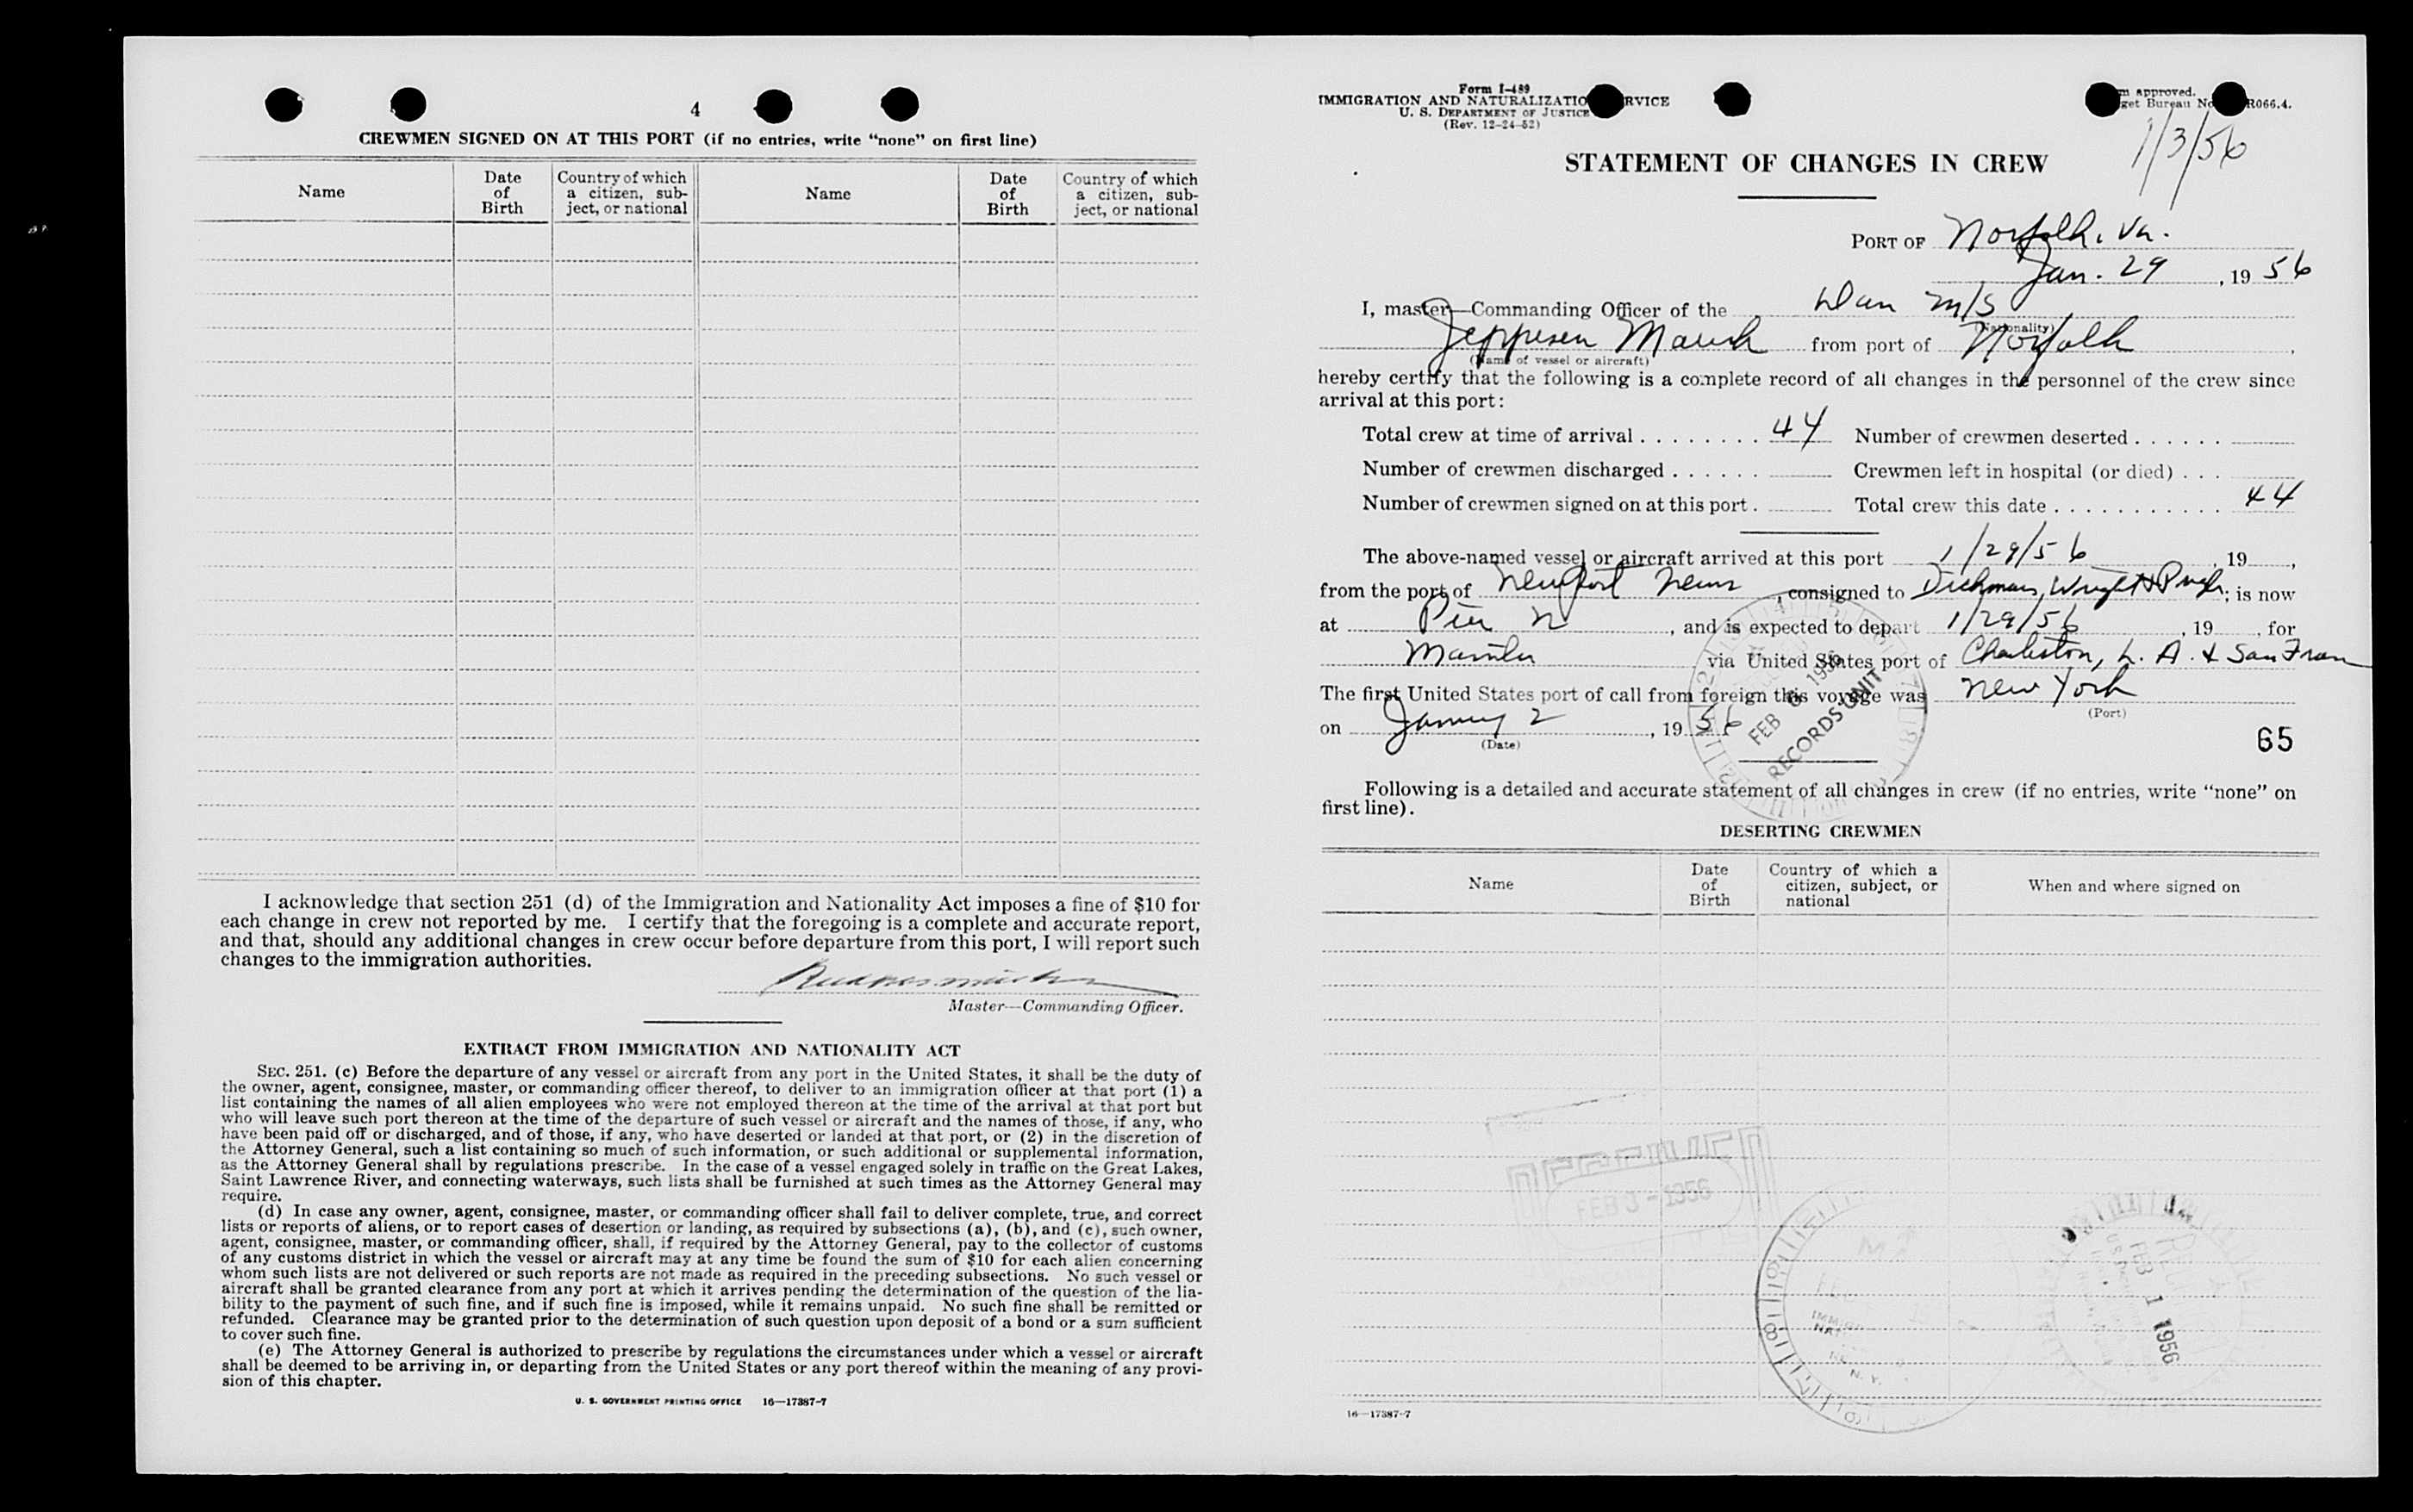 4
CREWMEN SIGNED ON AT THIS PORT (if no entries, write “none” on first line)
Name
Date of Birth
Country of which a citizen, subject, or national
Name
Date of Birth
Country of which a citizen, subject, or national
I acknowledge that section 251 (d) of the Immigration and Nationality Act imposes a fine of $10 for
each change in crew not reported by me. I certify that the foregoing is a complete and accurate report,
and that, should any additional changes in crew occur before departure from this port, I will report such
changes to the immigration authorities.
Master—Commanding Officer.
EXTRACT FROM IMMIGRATION AND NATIONALITY ACT
SEC. 251. (c) Before the departure of any vessel or aircraft from any port in the United States, it shall be the duty of
the owner, agent, consignee, master, or commanding officer thereof, to deliver to an immigration officer at that port (1) a
list containing the names of all alien employees who were not employed thereon at the time of the arrival at that port but
who will leave such port thereon at the time of the departure of such vessel or aircraft and the names of those, if any, who
have been paid off or discharged, and of those, if any, who have deserted or landed at that port, or (2) in the discretion of
the Attorney General, such a list containing so much of such information, or such additional or supplemental information,
as the Attorney General shall by regulations prescribe. In the case of a vessel engaged solely in traffic on the Great Lakes,
Saint Lawrence River, and connecting waterways, such lists shall be furnished at such times as the Attorney General may
require.
(d) In case any owner, agent, consignee, master, or commanding officer shall fail to deliver complete, true, and correct
lists or reports of aliens, or to report cases of desertion or landing, as required by subsections (a), (b), and (c), such owner,
agent, consignee, master, or commanding officer, shall, if required by the Attorney General, pay to the collector of customs
of any customs district in which the vessel or aircraft may at any time be found the sum of $10 for each alien concerning
whom such lists are not delivered or such reports are not made as required in the preceding subsections. No such vessel or
aircraft shall be granted clearance from any port at which it arrives pending the determination of the question of the lia-
bility to the payment of such fine, and if such fine is imposed, while it remains unpaid. No such fine shall be remitted or
refunded. Clearance may be granted prior to the determination of such question upon deposit of a bond or a sum sufficient
to cover such fine.
(e) The Attorney General is authorized to prescribe by regulations the circumstances under which a vessel or aircraft
shall be deemed to be arriving in, or departing from the United States or any port thereof within the meaning of any provi-
sion of this chapter.
U. S. GOVERNMENT PRINTING OFFICE 16—17387-7
Form I-489
IMMIGRATION AND NATURALIZATIO RVICE
U. S. DEPARTMENT OF JUSTICE
(Rev. 12-24-52)
m approved.
get Bureau No R066.4.
1/3/56
STATEMENT OF CHANGES IN CREW
PORT OF Norfolk, Va.
Jan. 29, 19 56
I, master—Commanding Officer of the Dan M/S
(Nationality)
Jeppesen Maersk from port of Norfolk,
(Name of vessel or aircraft)
hereby certify that the following is a complete record of all changes in the personnel of the crew since
arrival at this port:
Total crew at time of arrival 44 Number of crewmen deserted
Number of crewmen discharged Crewmen left in hospital (or died)
Number of crewmen signed on at this port. Total crew this date 44
The above-named vessel or aircraft arrived at this port 1/29/56, 19 ,
from the port of Newport News, consigned to Dichmann, Wright & Pugh; is now
at Pier N, and is expected to depart 1/29/56, 19 , for
Manila via United States port of Charleston, L. A. & San Fran
The first United States port of call from foreign this voyage was New York
(Port)
on January 2, 19 56
(Date)
FEB 6 1956
RECORDS UNIT
65
Following is a detailed and accurate statement of all changes in crew (if no entries, write “none” on
first line).
DESERTING CREWMEN
Name
Date of Birth
Country of which a citizen, subject, or national
When and where signed on
FEB 3 - 1956
FEB 1 1956
N. Y.
16—17387-7